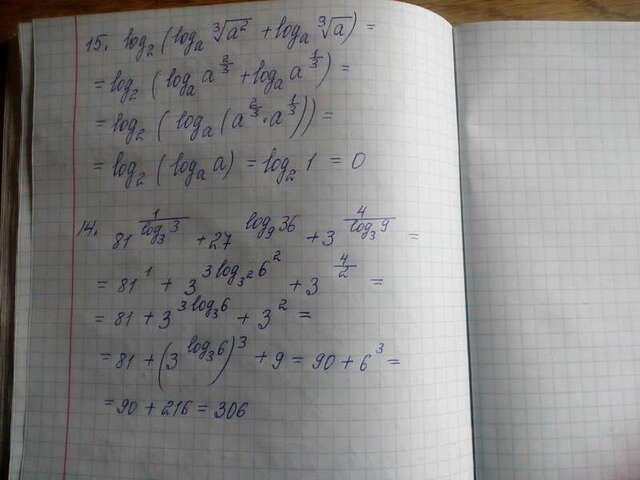 15. log₂(logₐ ∛a² + logₐ ∛a) =
= log₂(logₐ a^(2/3) + logₐ a^(1/3)) =
= log₂(logₐ(a^(2/3) · a^(1/3))) =
= log₂(logₐ a) = log₂ 1 = 0
14. 81^(1/log₃ 3) + 27^(log₉ 36) + 3^(4/log₃ 9) =
= 81¹ + 3^(3 log_(3²) 6²) + 3^(4/2) =
= 81 + 3^(3 log₃ 6) + 3² =
= 81 + (3^(log₃ 6))³ + 9 = 90 + 6³ =
= 90 + 216 = 306